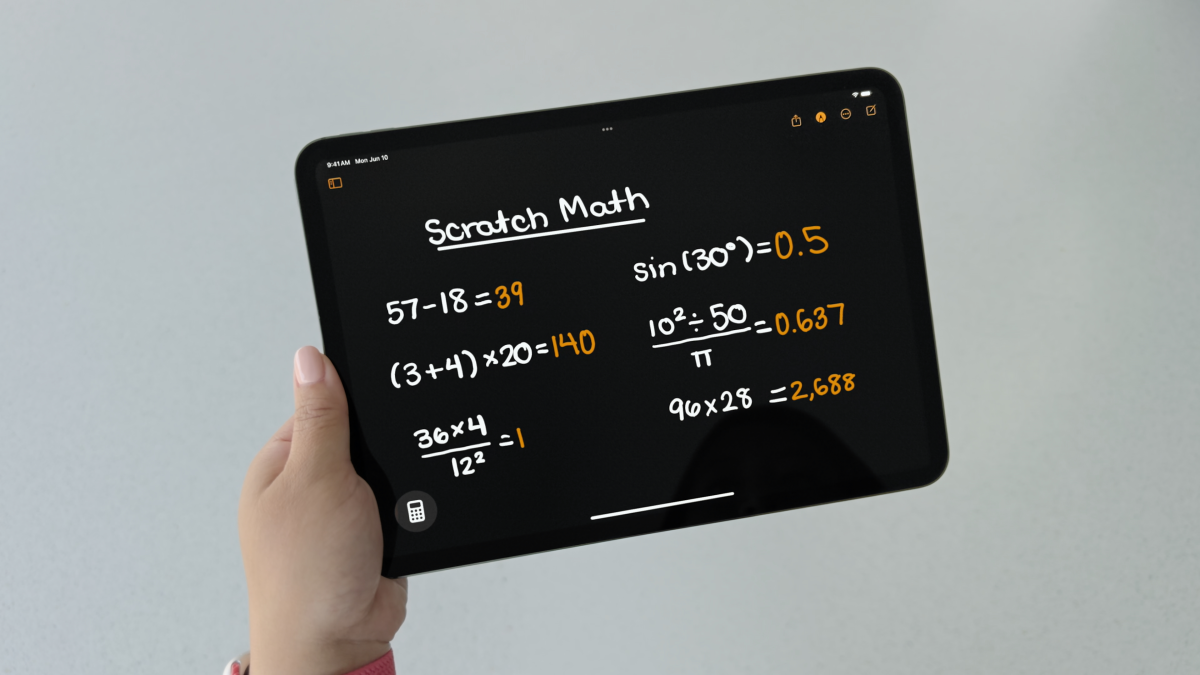 9:41 AM Mon Jun 10
Scratch Math
57-18=39
(3+4)×20=140
36×4
12²
=1
sin(30°)=0.5
10²÷50
π
=0.637
96×28 =2,688